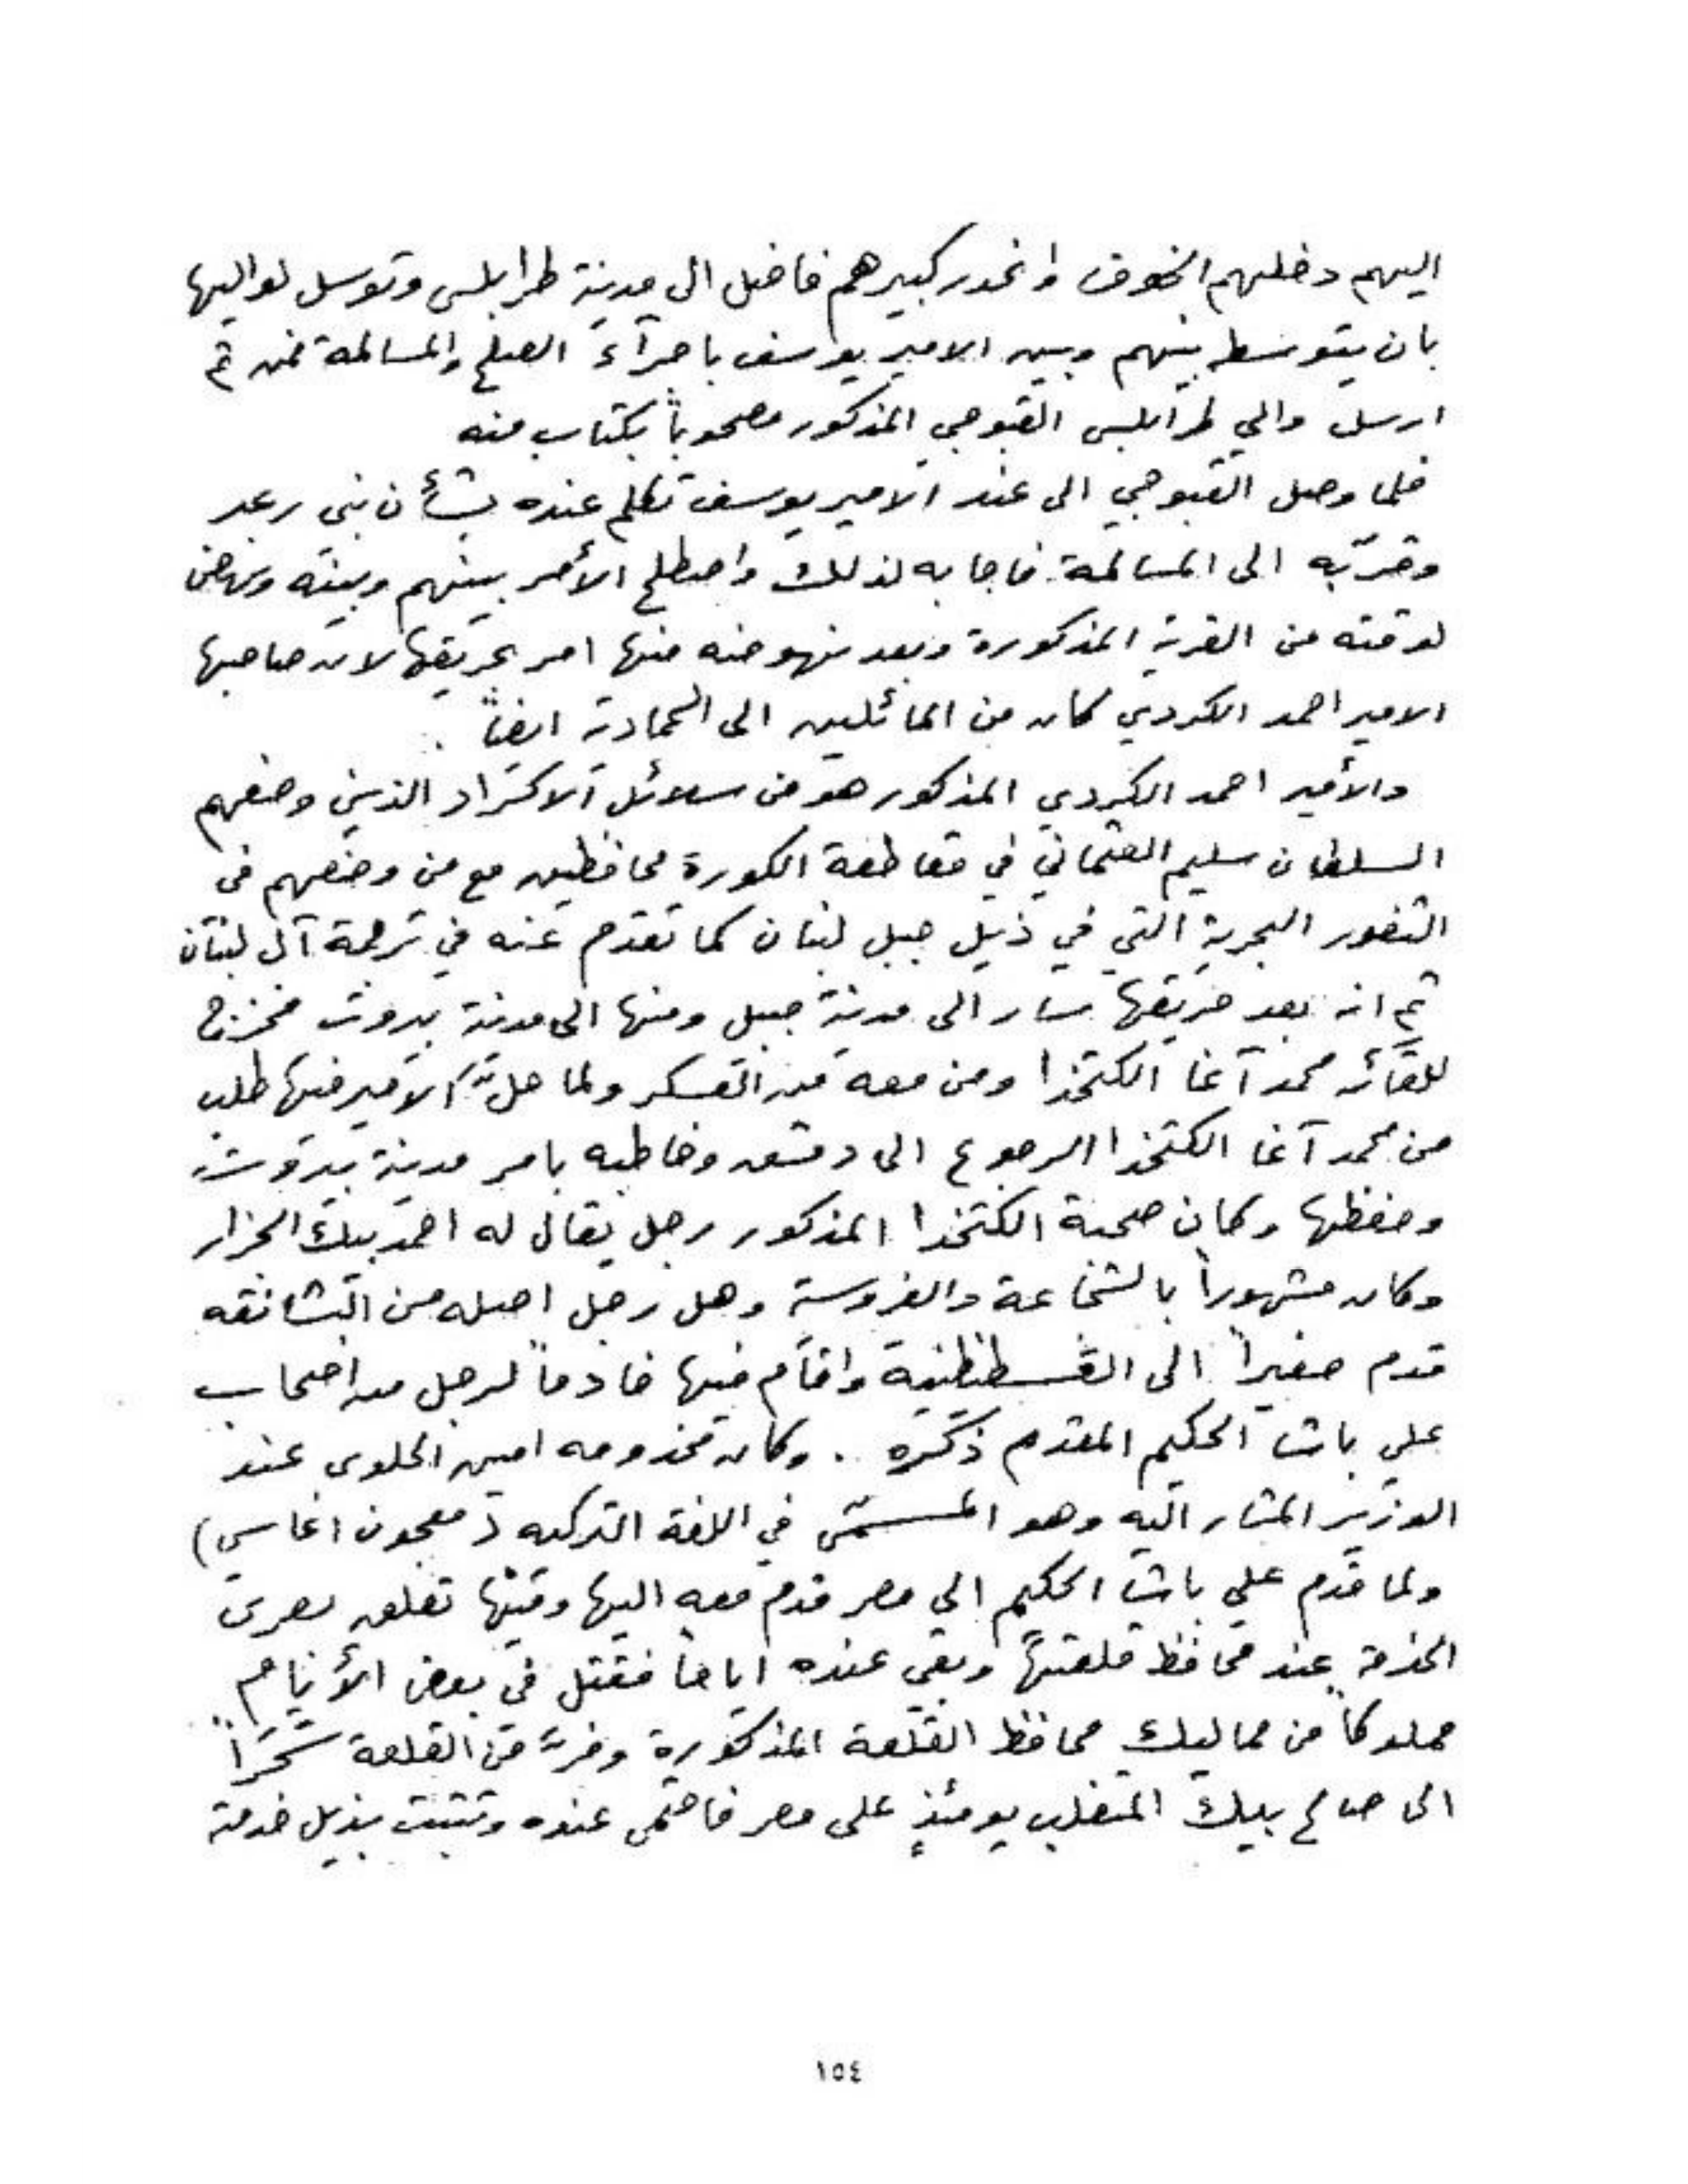 اليهم دخلهم الخوف وانحدر كبيرهم فاضل الى مدينة طرابلس وتوسل لواليها
بان يتوسط بينهم وبين الامير يوسف باجرآء الصلح والمسالمة فمن ثم
ارسل والي طرابلس القبوجي المذكور مصحوباً بكتاب منه
فلما وصل القبوجي الى عند الامير يوسف تكلم عنده بشأن بني رعد
وقرّبه الى المسالمة فاجابه لذلك واصطلح الأمر بينهم وبينه ونهض
لوقته من القرية المذكورة وبعد نهوضه منها امر بحريقها لان صاحبها
الامير احمد الكردي كان من المائلين الى الحمادية ايضاً .
والأمير احمد الكردي المذكور هو من سلائل الاكراد الذين وضعهم
السلطان سليم العثماني في مقاطعة الكورة محافظين مع من وضعهم في
الثغور البحرية التي في ذيل جبل لبنان كما تقدم عنه في ترجمة آل لبنان
ثم انه بعد حريقها سار الى مدينة جبيل ومنها الى مدينة بيروت فخرج
للقآئه محمد آغا الكتخذا ومن معه من العسكر ولما حلّ الامير فيها طلب
من محمد آغا الكتخذا الرجوع الى دمشق وخاطبه بامر مدينة بيروت
وحفظها وكان صحبة الكتخذا المذكور رجل يقال له احمد بيك الجزار
وكان مشهوراً بالشجاعة والفروسة وهل رجل اصله من البشانقه
قدم صغيراً الى القسطنطينية واقام فيها خادماً لرجل من اصحاب
علي باشا الحكيم المقدم ذكره . وكان مخدومه امين الحلوى عند
الوزير المشار اليه وهو المسمّى في اللغة التركيه ( معجون اغاسي )
ولما قدم علي باشا الحكيم الى مصر قدم معه اليها وفيها تعلق بعرى
الخدمة عند محافظ قلعتها وبقي عنده اياماً فقتل في بعض الأيام
مملوكاً من مماليك محافظ القلعة المذكورة وفرّ من القلعة سَحَرَاً
الى صالح بيك المتغلب يومئذٍ على مصر فاحتمى عنده وتشبث بذيل خدمة
١٥٤